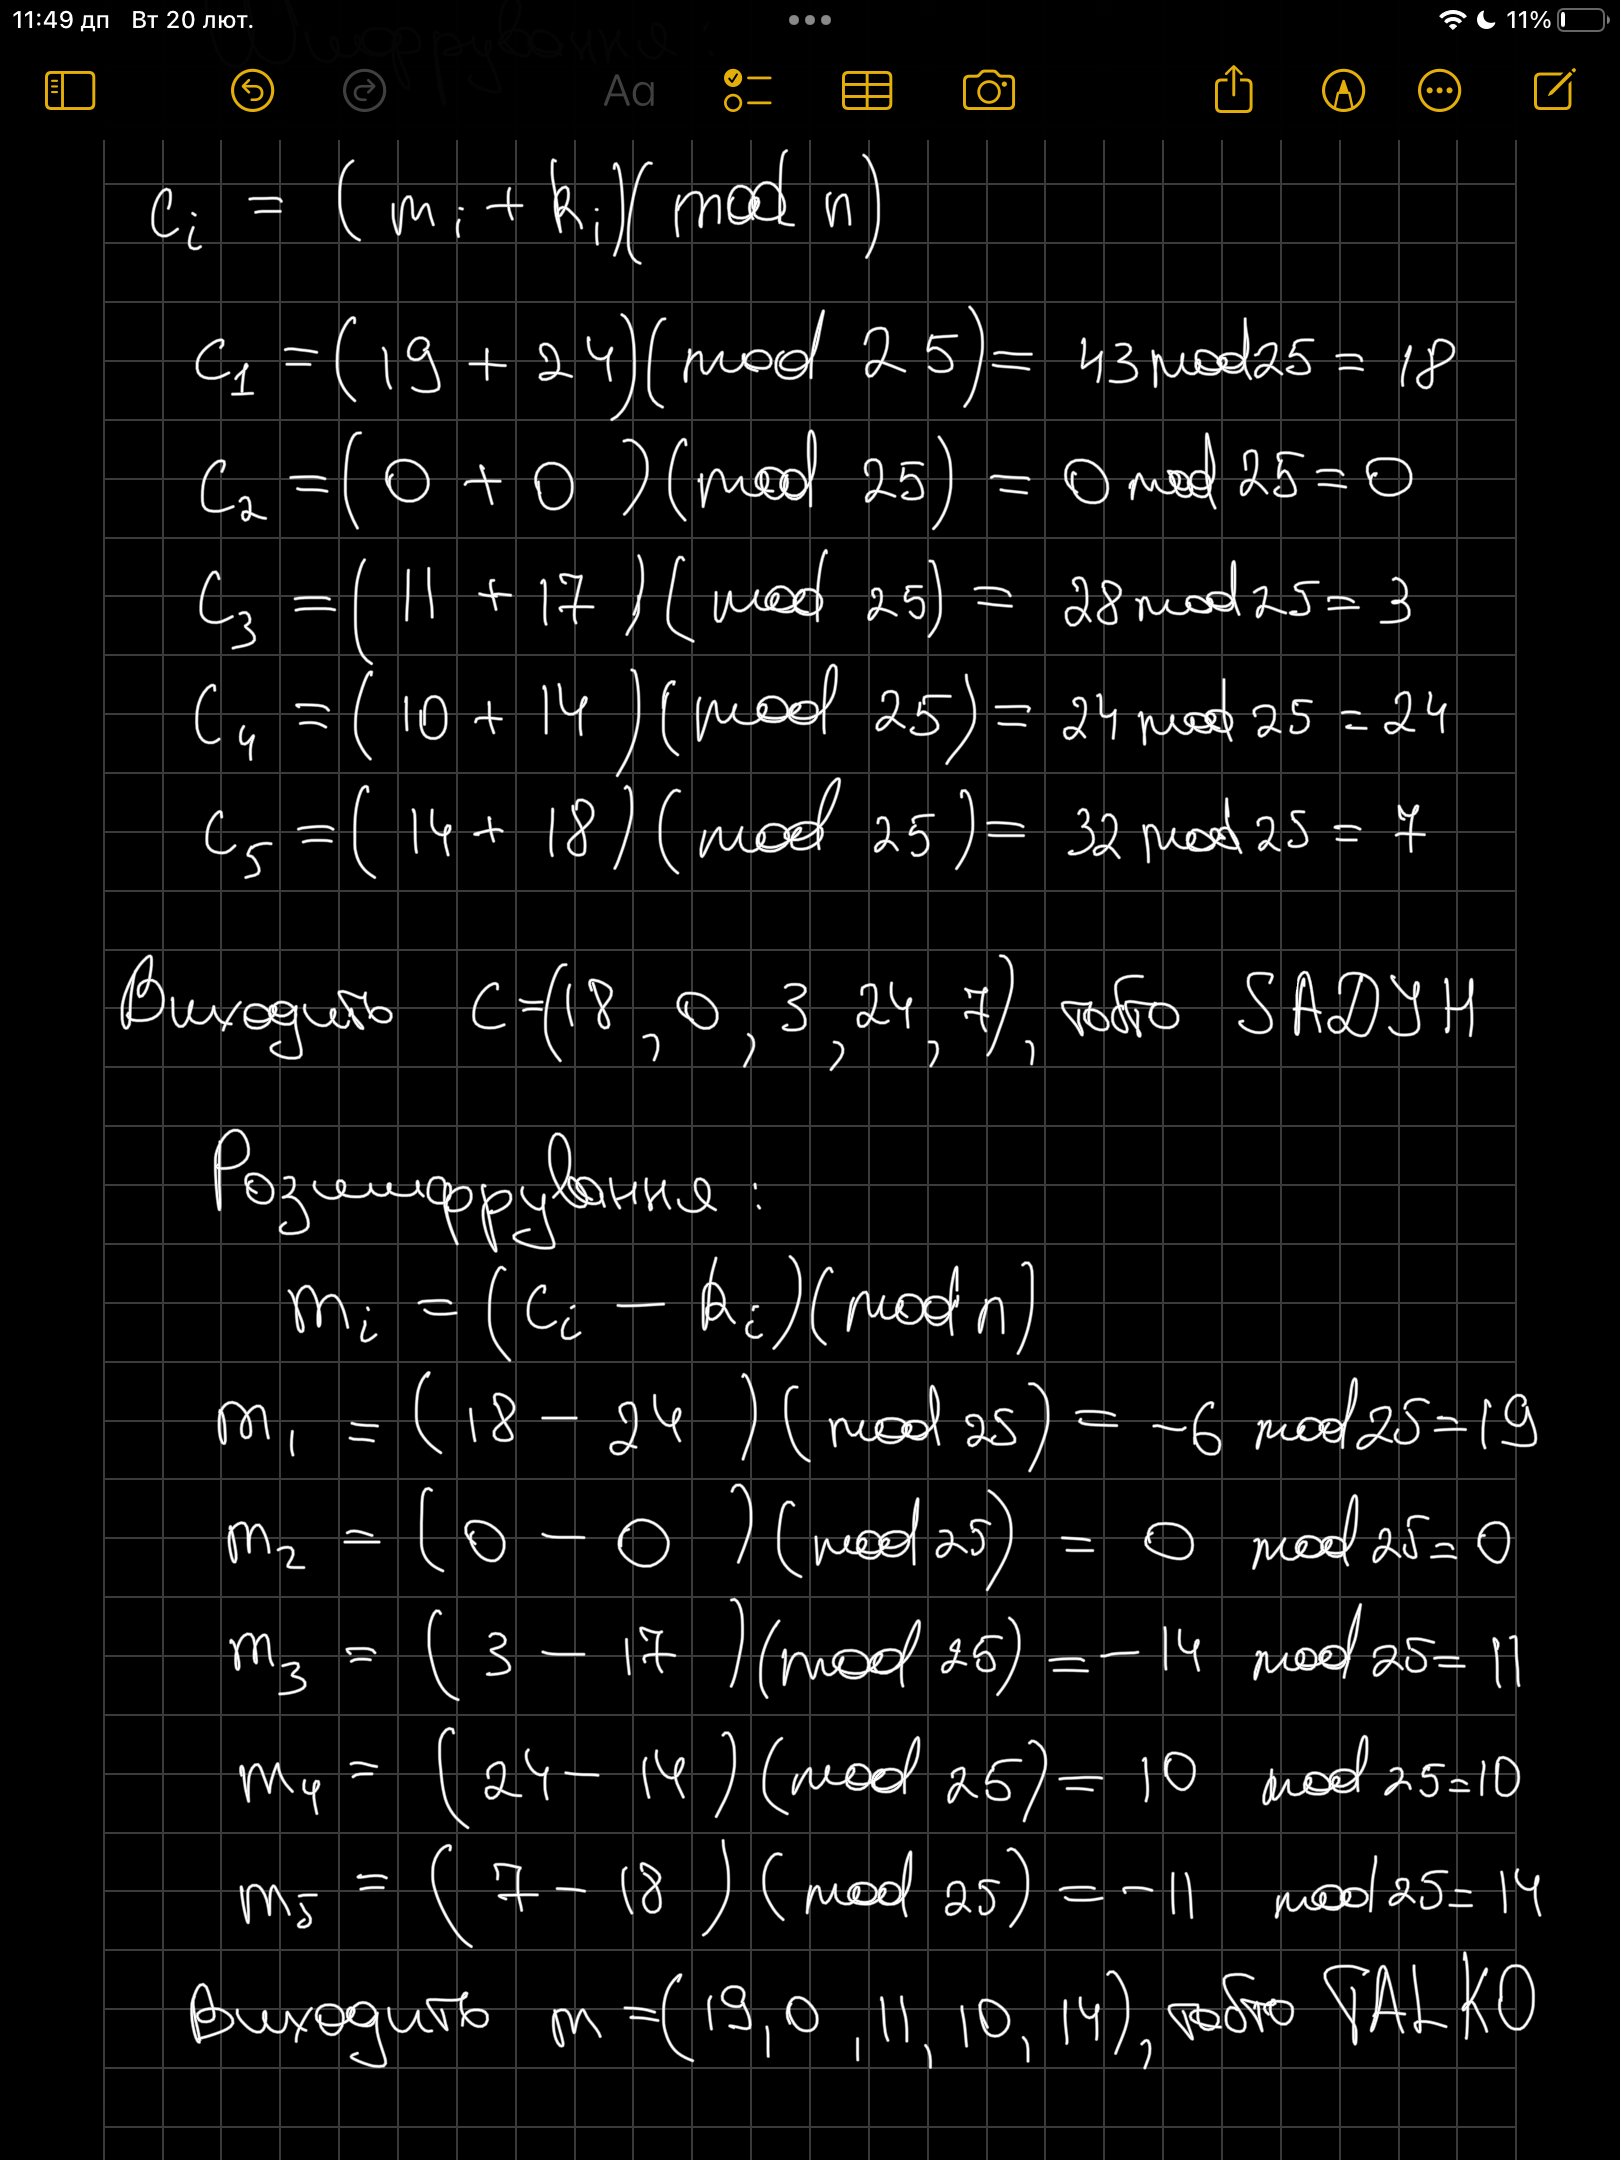 11:49 дп Вт 20 лют.
11%
Aa
Шифрування:
c_i = (m_i + k_i)(mod n)
c_1 = (19 + 24)(mod 25) = 43 mod 25 = 18
c_2 = (0 + 0)(mod 25) = 0 mod 25 = 0
c_3 = (11 + 17)(mod 25) = 28 mod 25 = 3
c_4 = (10 + 14)(mod 25) = 24 mod 25 = 24
c_5 = (14 + 18)(mod 25) = 32 mod 25 = 7
Виходить C = (18, 0, 3, 24, 7), тобто SADYH
Розшифрування:
m_i = (c_i - k_i)(mod n)
m_1 = (18 - 24)(mod 25) = -6 mod 25 = 19
m_2 = (0 - 0)(mod 25) = 0 mod 25 = 0
m_3 = (3 - 17)(mod 25) = -14 mod 25 = 11
m_4 = (24 - 14)(mod 25) = 10 mod 25 = 10
m_5 = (7 - 18)(mod 25) = -11 mod 25 = 14
Виходить m = (19, 0, 11, 10, 14), тобто TALKO